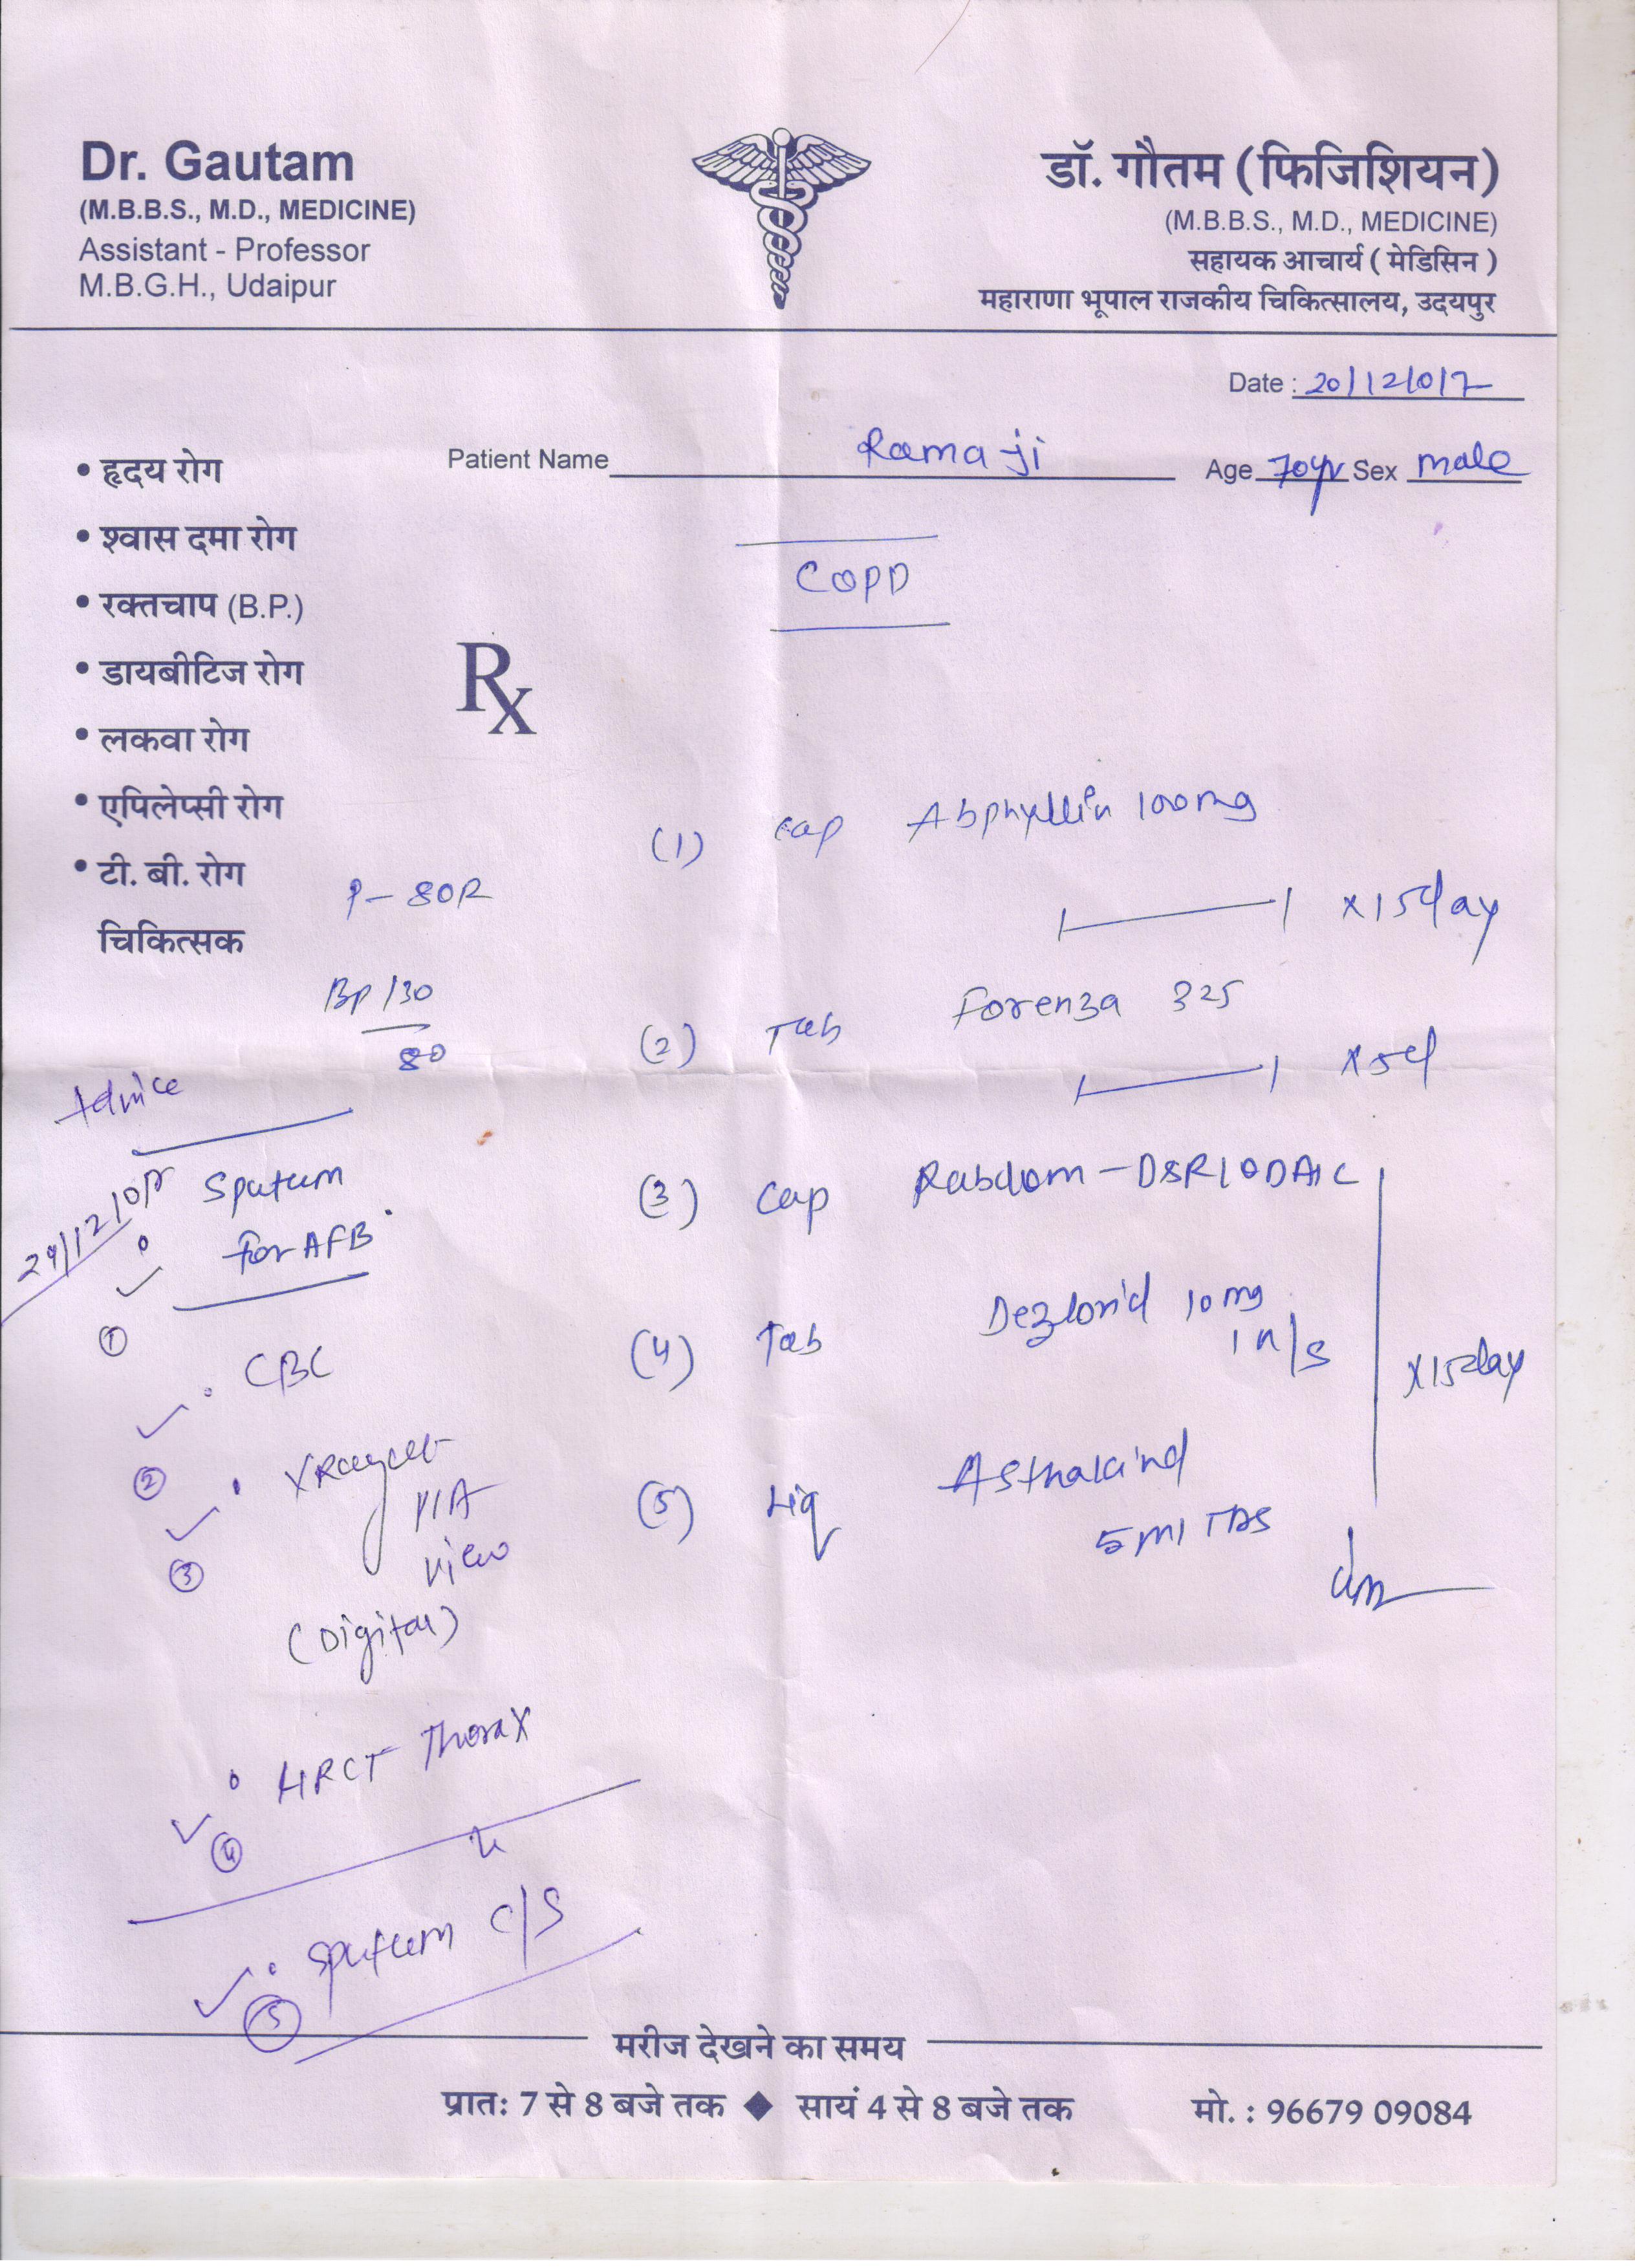 Dr. Gautam
(M.B.B.S., M.D., MEDICINE)
Assistant - Professor
M.B.G.H., Udaipur
डॉ. गौतम (फिजिशियन)
(M.B.B.S., M.D., MEDICINE)
सहायक आचार्य ( मेडिसिन )
महाराणा भूपाल राजकीय चिकित्सालय, उदयपुर
Date : 20/12/017
Patient Name Rama ji Age 70yr Sex male
• हृदय रोग
• श्वास दमा रोग
• रक्तचाप (B.P.)
• डायबीटिज रोग
• लकवा रोग
• एपिलेप्सी रोग
• टी. बी. रोग
चिकित्सक
COPD
Rx
P - 80R
BP 130
80
(1) Cap Abphyllin 100mg
x 15day
(2) Tab Forenza 325
x 5d
(3) Cap Rabdom-DSR 1 OD AC
(4) Tab Dezlorid 10mg
1 n/s
x 15day
(5) Liq Asthakind
5ml TDS
Advice
Sputum
for AFB
①
• CBC
②
• XRay
P/A
view
(Digital)
③
• HRCT Thorax
④
• Sputum C/S
⑤
मरीज देखने का समय
प्रात: 7 से 8 बजे तक ◆ सायं 4 से 8 बजे तक
मो. : 96679 09084